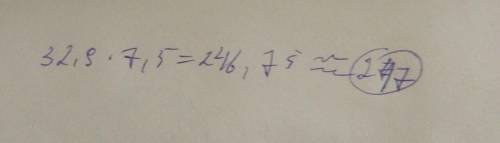 32,9 · 7,5 = 246,75 ≈ 247